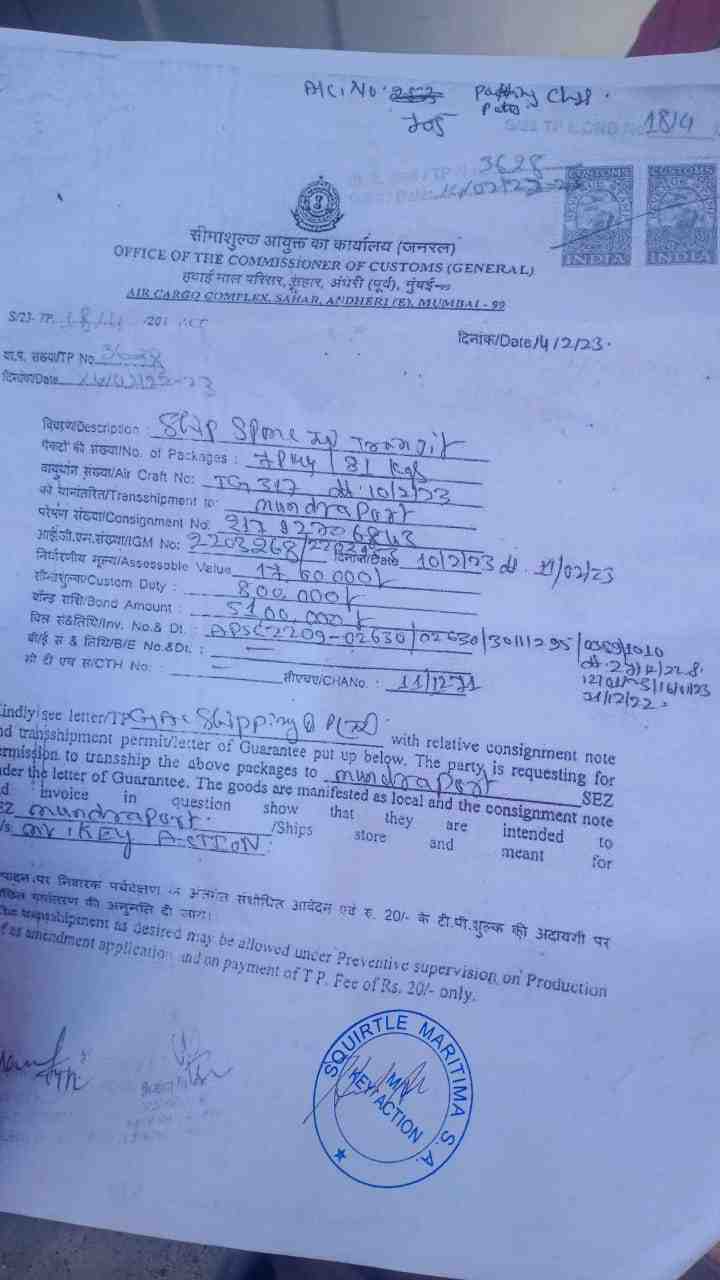 A/C: No.
3628
18/4
CUSTOMS CUSTOMS
INDIA INDIA
सीमाशुल्क आयुक्त का कार्यालय (जनरल)
OFFICE OF THE COMMISSIONER OF CUSTOMS (GENERAL)
हवाई माल परिसर, सहार, अंधेरी (पूर्व), मुंबई-९९
AIR CARGO COMPLEX, SAHAR, ANDHERI (E), MUMBAI - 99
S/23- TP. /201
दिनांक/Date/4/2/23.
संख्या/TP No. 3628
दिनांक/Date
विवरण/Description : Ship Spare in Transit
पैकेटों की संख्या/No. of Packages : 7 Pkg / 81 Kgs
वायुयान संख्या/Air Craft No: TG 317 dt. 10/2/23
को यानांतरित/Transshipment to: mundraport
परेषण संख्या/Consignment No: 217 92706843
आई.जी.एम.संख्या/IGM No: 2203268/ दिनांक/Date 10/2/23 dt. 11/02/23
निर्धारणीय मूल्य/Assessable Value 1760000/-
सीमाशुल्क/Custom Duty : 800,000/-
बॉन्ड राशि/Bond Amount : 5100,000/-
Inv. No.& Dt. : APSC2209-02630/02630/30111295/
बी/ई सं & तिथि/B/E No.&Dt. : —
21/12/22
सी टी एच स/CTH No. : — सीएचए/CHANo. : 11/1271
indly see letter/TP Shipping with relative consignment note
nd transshipment permit/letter of Guarantee put up below. The party is requesting for
ermission to transship the above packages to mundraport SEZ
der the letter of Guarantee. The goods are manifested as local and the consignment note
d invoice in question show that they are intended to
EZ mundraport. /Ships store and meant for
/s mv : KEY ACTION.
पर निवारक पर्यवेक्षण के अंतर्गत संशोधित आवेदन एवं रु. 20/- के टी.पी.शुल्क की अदायगी पर
यानांतरण की अनुमति दी जाए।
transhipment as desired may be allowed under Preventive supervision on Production
f as amendment application and on payment of T P. Fee of Rs. 20/- only.
SQUIRTLE MARITIMA S.A.
M/V
KEY ACTION